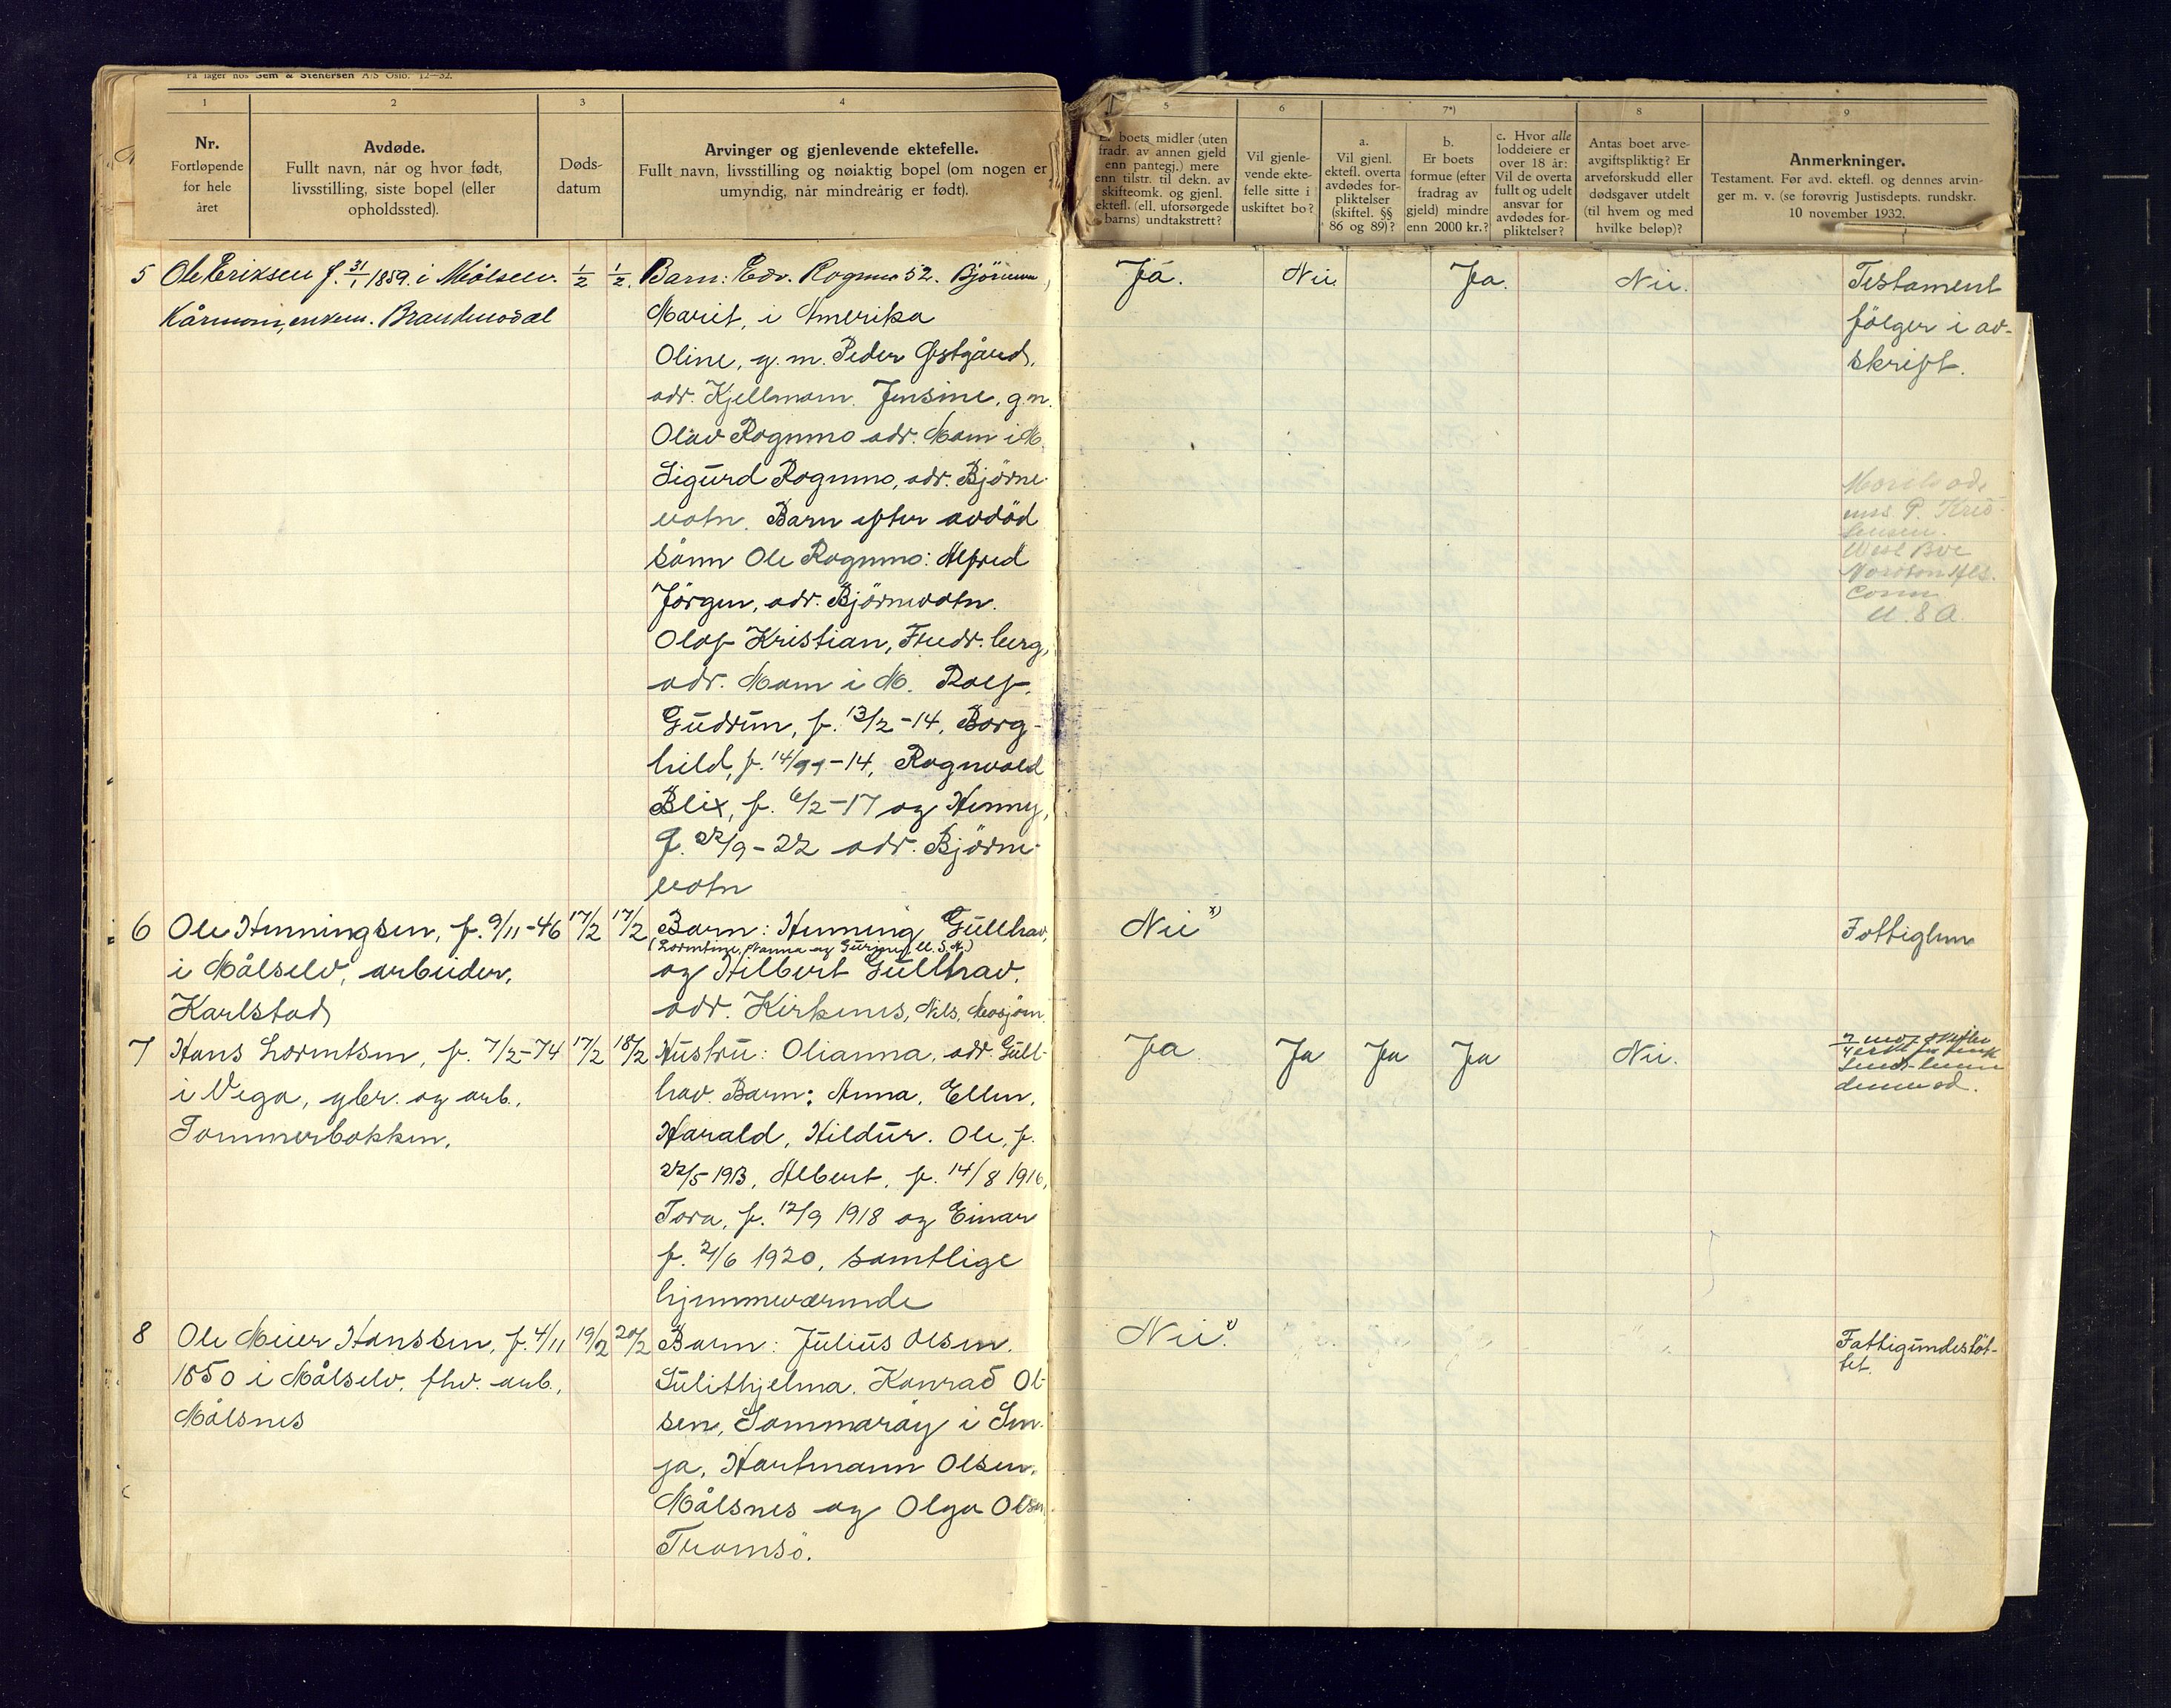 På lager hos Sem & Stenersen A/S Oslo. 12—32.
1 2 3 4
Nr.
Fortløpende
for hele
året
Avdøde.
Fullt navn, når og hvor født,
livsstilling, siste bopel (eller
opholdssted).
Døds-
datum
Arvinger og gjenlevende ektefelle.
Fullt navn, livsstilling og nøiaktig bopel (om nogen er
umyndig, når mindreårig er født).
5 6 7*) 8 9
boets midler (uten
fradr. av annen gjeld
enn pantegj.) mere
enn tilstr. til dekn. av
skifteomk. og gjenl.
ektefl. (ell. uforsørgede
barns) undtakstrett?
Vil gjenle-
vende ekte-
felle sitte i
uskiftet bo?
a.
Vil gjenl.
ektefl. overta
avdødes for-
pliktelser
(skiftel. §§
86 og 89)?
b.
Er boets
formue (efter
fradrag av
gjeld) mindre
enn 2000 kr.?
c. Hvor alle
loddeiere er
over 18 år:
Vil de overta
fullt og udelt
ansvar for
avdødes for-
pliktelser?
Antas boet arve-
avgiftspliktig? Er
arveforskudd eller
dødsgaver utdelt
(til hvem og med
hvilke beløp)?
Anmerkninger.
Testament. Før avd. ektefl. og dennes arvin-
ger m. v. (se forøvrig Justisdepts. rundskr.
10 november 1932.
5 Ole Eriksen f. 31/1 1859. i Målselv. 1/2 1/2.
Kårmann, enkem.
Barn: Edv. Rognmo 52.
Marit, i Amerika
Oline, g. m. Peder Østgård,
adr. Kjellmann. Jensine, g.m.
Olav Rognmo adr. Moen i M.
Sigurd Rognmo, adr. Björne-
vatn. Barn efter avdöd
sönn Ole Rognmo: Alfred
Jörgen, adr. Björnevatn.
Olaf Kristian, Fredr.berg,
adr. Moen i M. Rolf,
Gudrun, f. 13/2-14, Borg-
hild, f. 14/11-14, Rognvald
Blix, f. 6/2-17 og Henny,
f. 22/9-22 adr. Björne-
vatn
Ja. Nei. Ja. Nei.
Testament
fölger i av-
skrift.
U.S.A.
6 Ole Henningsen, f. 9/11-46 17/2 17/2
i Målselv, arbeider,
Karlstad
Barn: Henning Gullhav,
og Hilbert Gullhav.
adr. Kirkenes, Nils, Mosjöen.
Nei x)
Fattiglem
7 Hans Lorentsen, f. 7/2-74 17/2 18/2
i Vega, gbr. og arb.
Tommerbakken.
Hustru: Olianna, adr. Gull-
hav. Barn: Anna, Ellen,
Harald, Hildur. Ole, f.
22/5-1913, Albert, f. 14/8 1916,
Tora, f. 12/9 1918 og Einar
f. 2/6 1920, samtlige
hjemmeværende
Ja. Ja Ja Ja Nei.
8 Ole Meier Hanssen, f. 4/11 19/2 20/2
1850 i Målselv. fhv. arb.,
Målsnes
Barn: Julius Olsen.
Sulithjelma. Konrad Ol-
sen, Sommaröy i Sen-
ja, Hartmann Olsen,
Målsnes og Olga Olsen
Tromsö.
Nei x)
Fattigunderstöt-
tet.